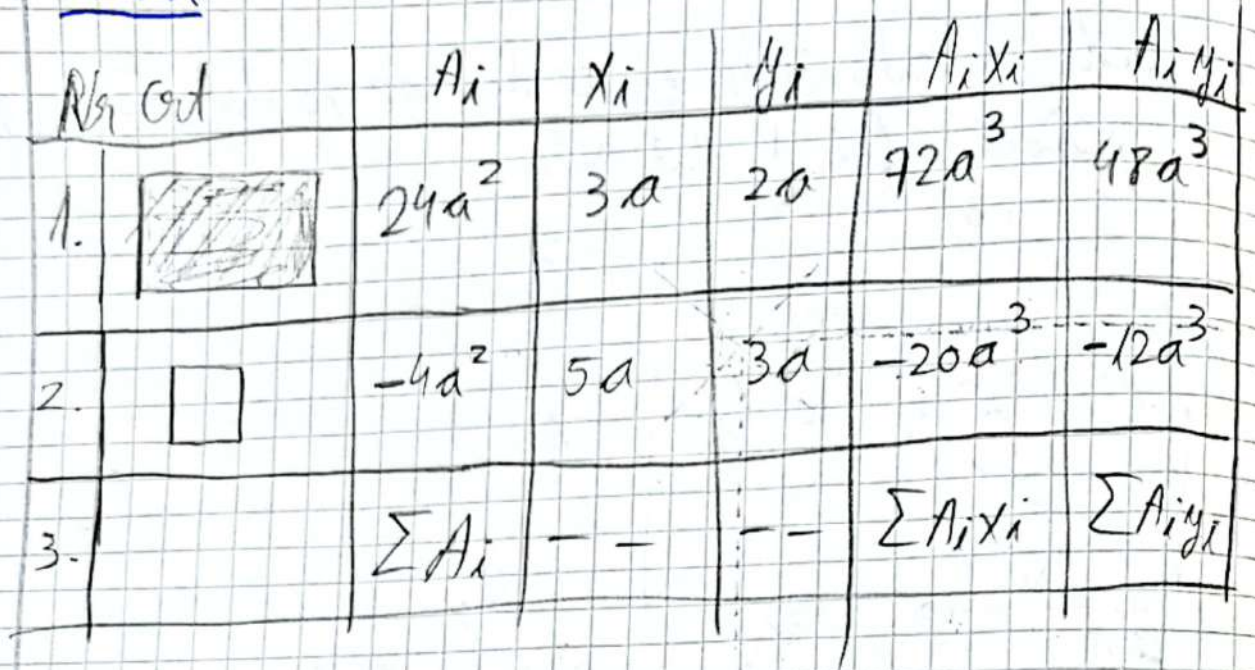 Nr Crt A_i X_i y_i A_i X_i A_i y_i
1. 24a² 3a 2a 72a³ 48a³
2. -4a² 5a 3a -20a³ -12a³
3. ΣA_i - - - - ΣA_i X_i ΣA_i y_i